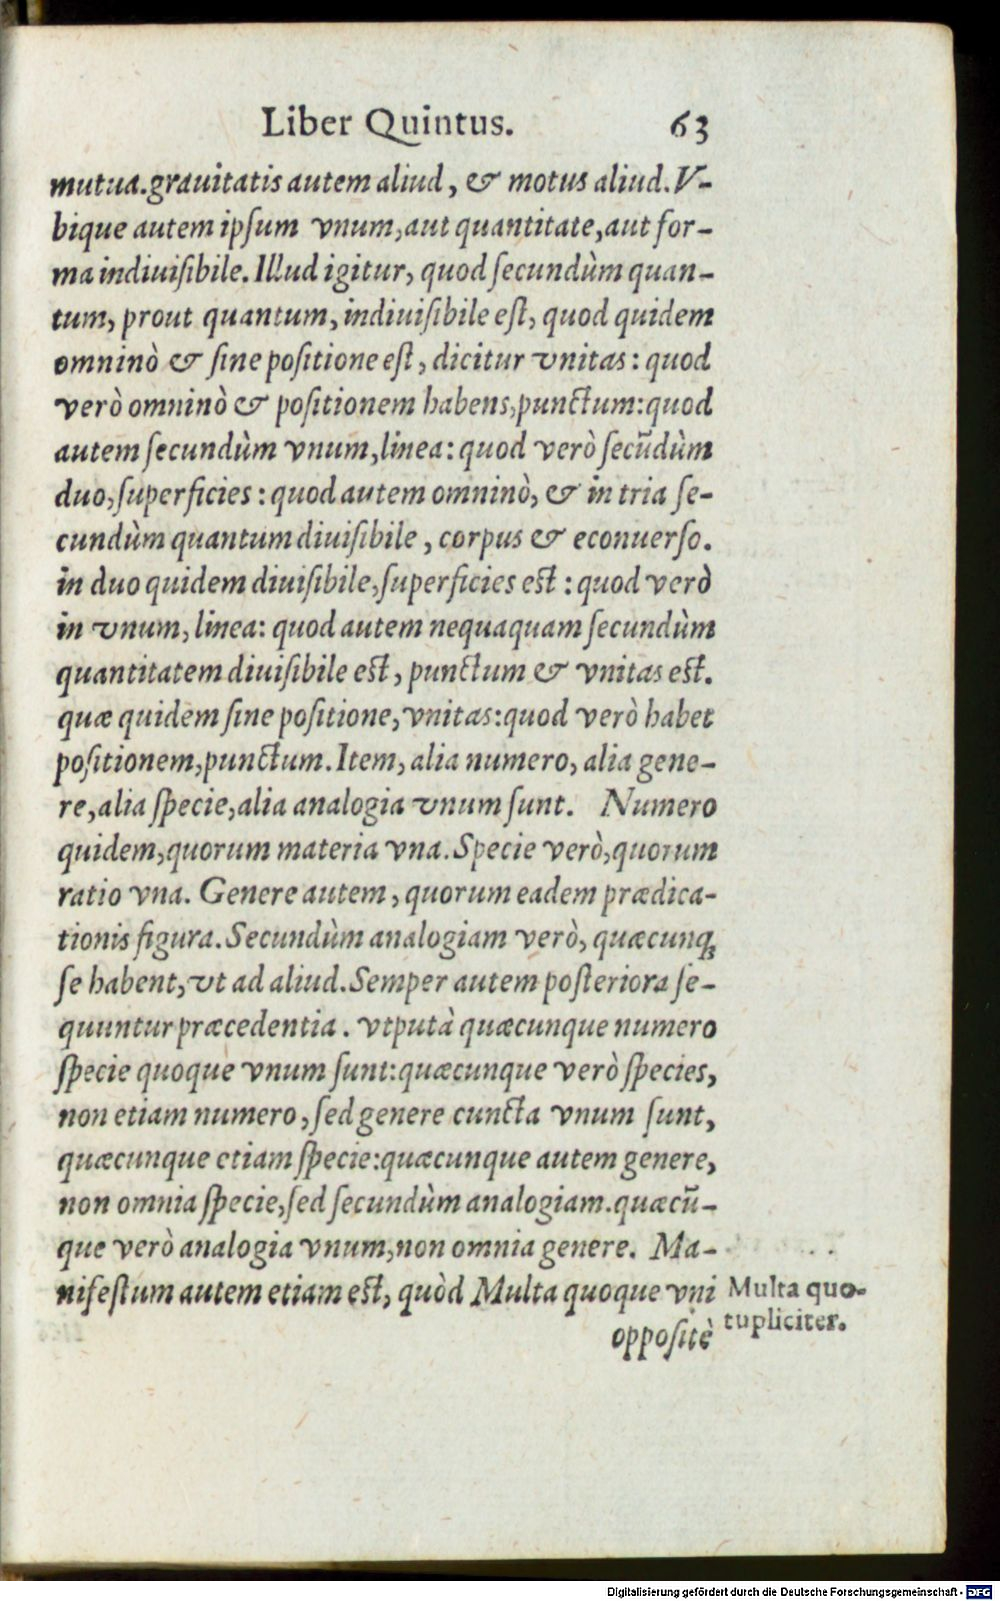 Liber Quintus. 63
mutua.grauitatis autem aliud, & motus aliud. V-
bique autem ipſum vnum,aut quantitate,aut for-
ma indiuiſibile. Illud igitur, quod ſecundùm quan-
tum, prout quantum, indiuiſibile eſt, quod quidem
omninò & ſine poſitione eſt, dicitur vnitas: quod
verò omninò & poſitionem habens,punctum:quod
autem ſecundùm vnum,linea: quod verò ſecūdùm
duo,ſuperficies: quod autem omninò, & in tria ſe-
cundùm quantum diuiſibile, corpus & econuerſo.
in duo quidem diuiſibile,ſuperficies eſt: quod verò
in vnum, linea: quod autem nequaquam ſecundùm
quantitatem diuiſibile eſt, punctum & vnitas eſt.
quæ quidem ſine poſitione,vnitas:quod verò habet
poſitionem,punctum. Item, alia numero, alia gene-
re,alia ſpecie,alia analogia vnum ſunt. Numero
quidem,quorum materia vna. Specie verò,quorum
ratio vna. Genere autem, quorum eadem prædica-
tionis figura. Secundùm analogiam verò, quæcunq;
ſe habent, vt ad aliud. Semper autem poſteriora ſe-
quuntur præcedentia. vtputà quæcunque numero
ſpecie quoque vnum ſunt:quæcunque verò ſpecies,
non etiam numero, ſed genere cuncta vnum ſunt,
quæcunque etiam ſpecie:quæcunque autem genere,
non omnia ſpecie,ſed ſecundùm analogiam.quæcū-
que verò analogia vnum,non omnia genere. Ma-
nifeſtum autem etiam eſt, quòd Multa quoque vni
Multa quo-
tupliciter.
oppoſitè
Digitalisierung gefördert durch die Deutsche Forschungsgemeinschaft - DFG